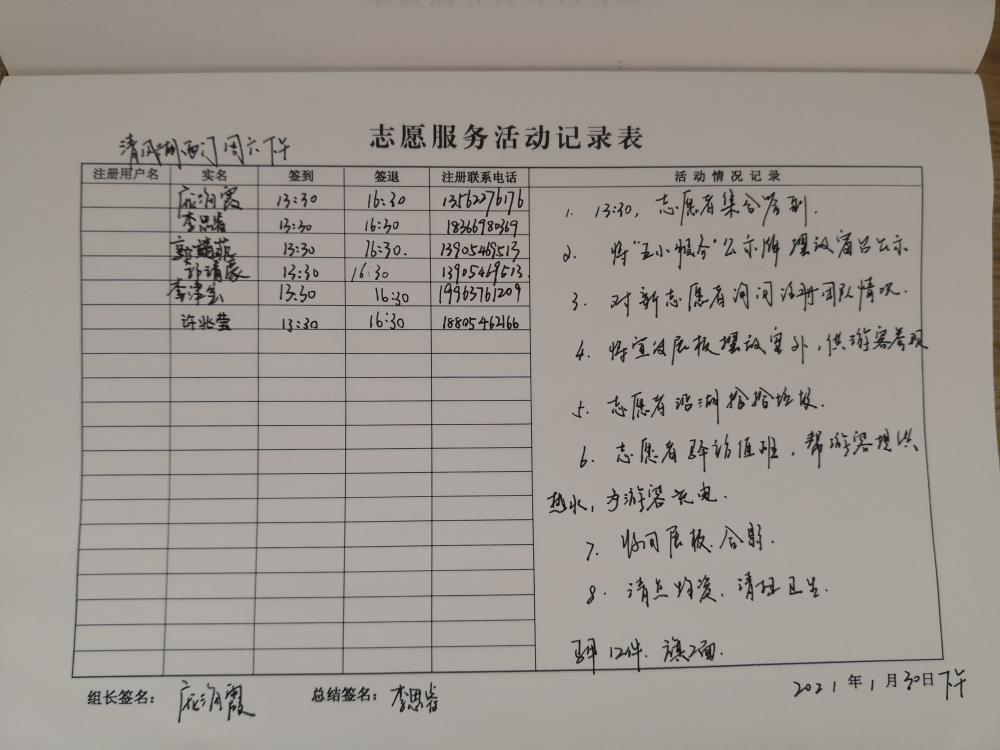 志愿服务活动记录表
清风湖西门周六下午
注册用户名 实名 签到 签退 注册联系电话 活动情况记录
13:30 16:30 13562276176
李思睿 13:30 16:30 18366980369
13:30 16:30. 13905469513
13:30 16:30 13905469513.
13:30 16:30 19963761209
许兆莹 13:30 16:30 18805462166
1. 13:30, 志愿者集合签到.
2. 将"五小报告"公示牌摆放窗台公示
3. 对新志愿者询问注册团队情况.
4. 将宣传展板摆放室外, 供游客参观
5. 志愿者沿湖捡拾垃圾.
6. 志愿者驿站值班, 帮游客提供
热水, 为游客充电.
7. 收回展板. 合影.
8. 清点物资. 清理卫生.
12件. 旗2面.
组长签名: 总结签名: 李思睿
2021年1月30日下午